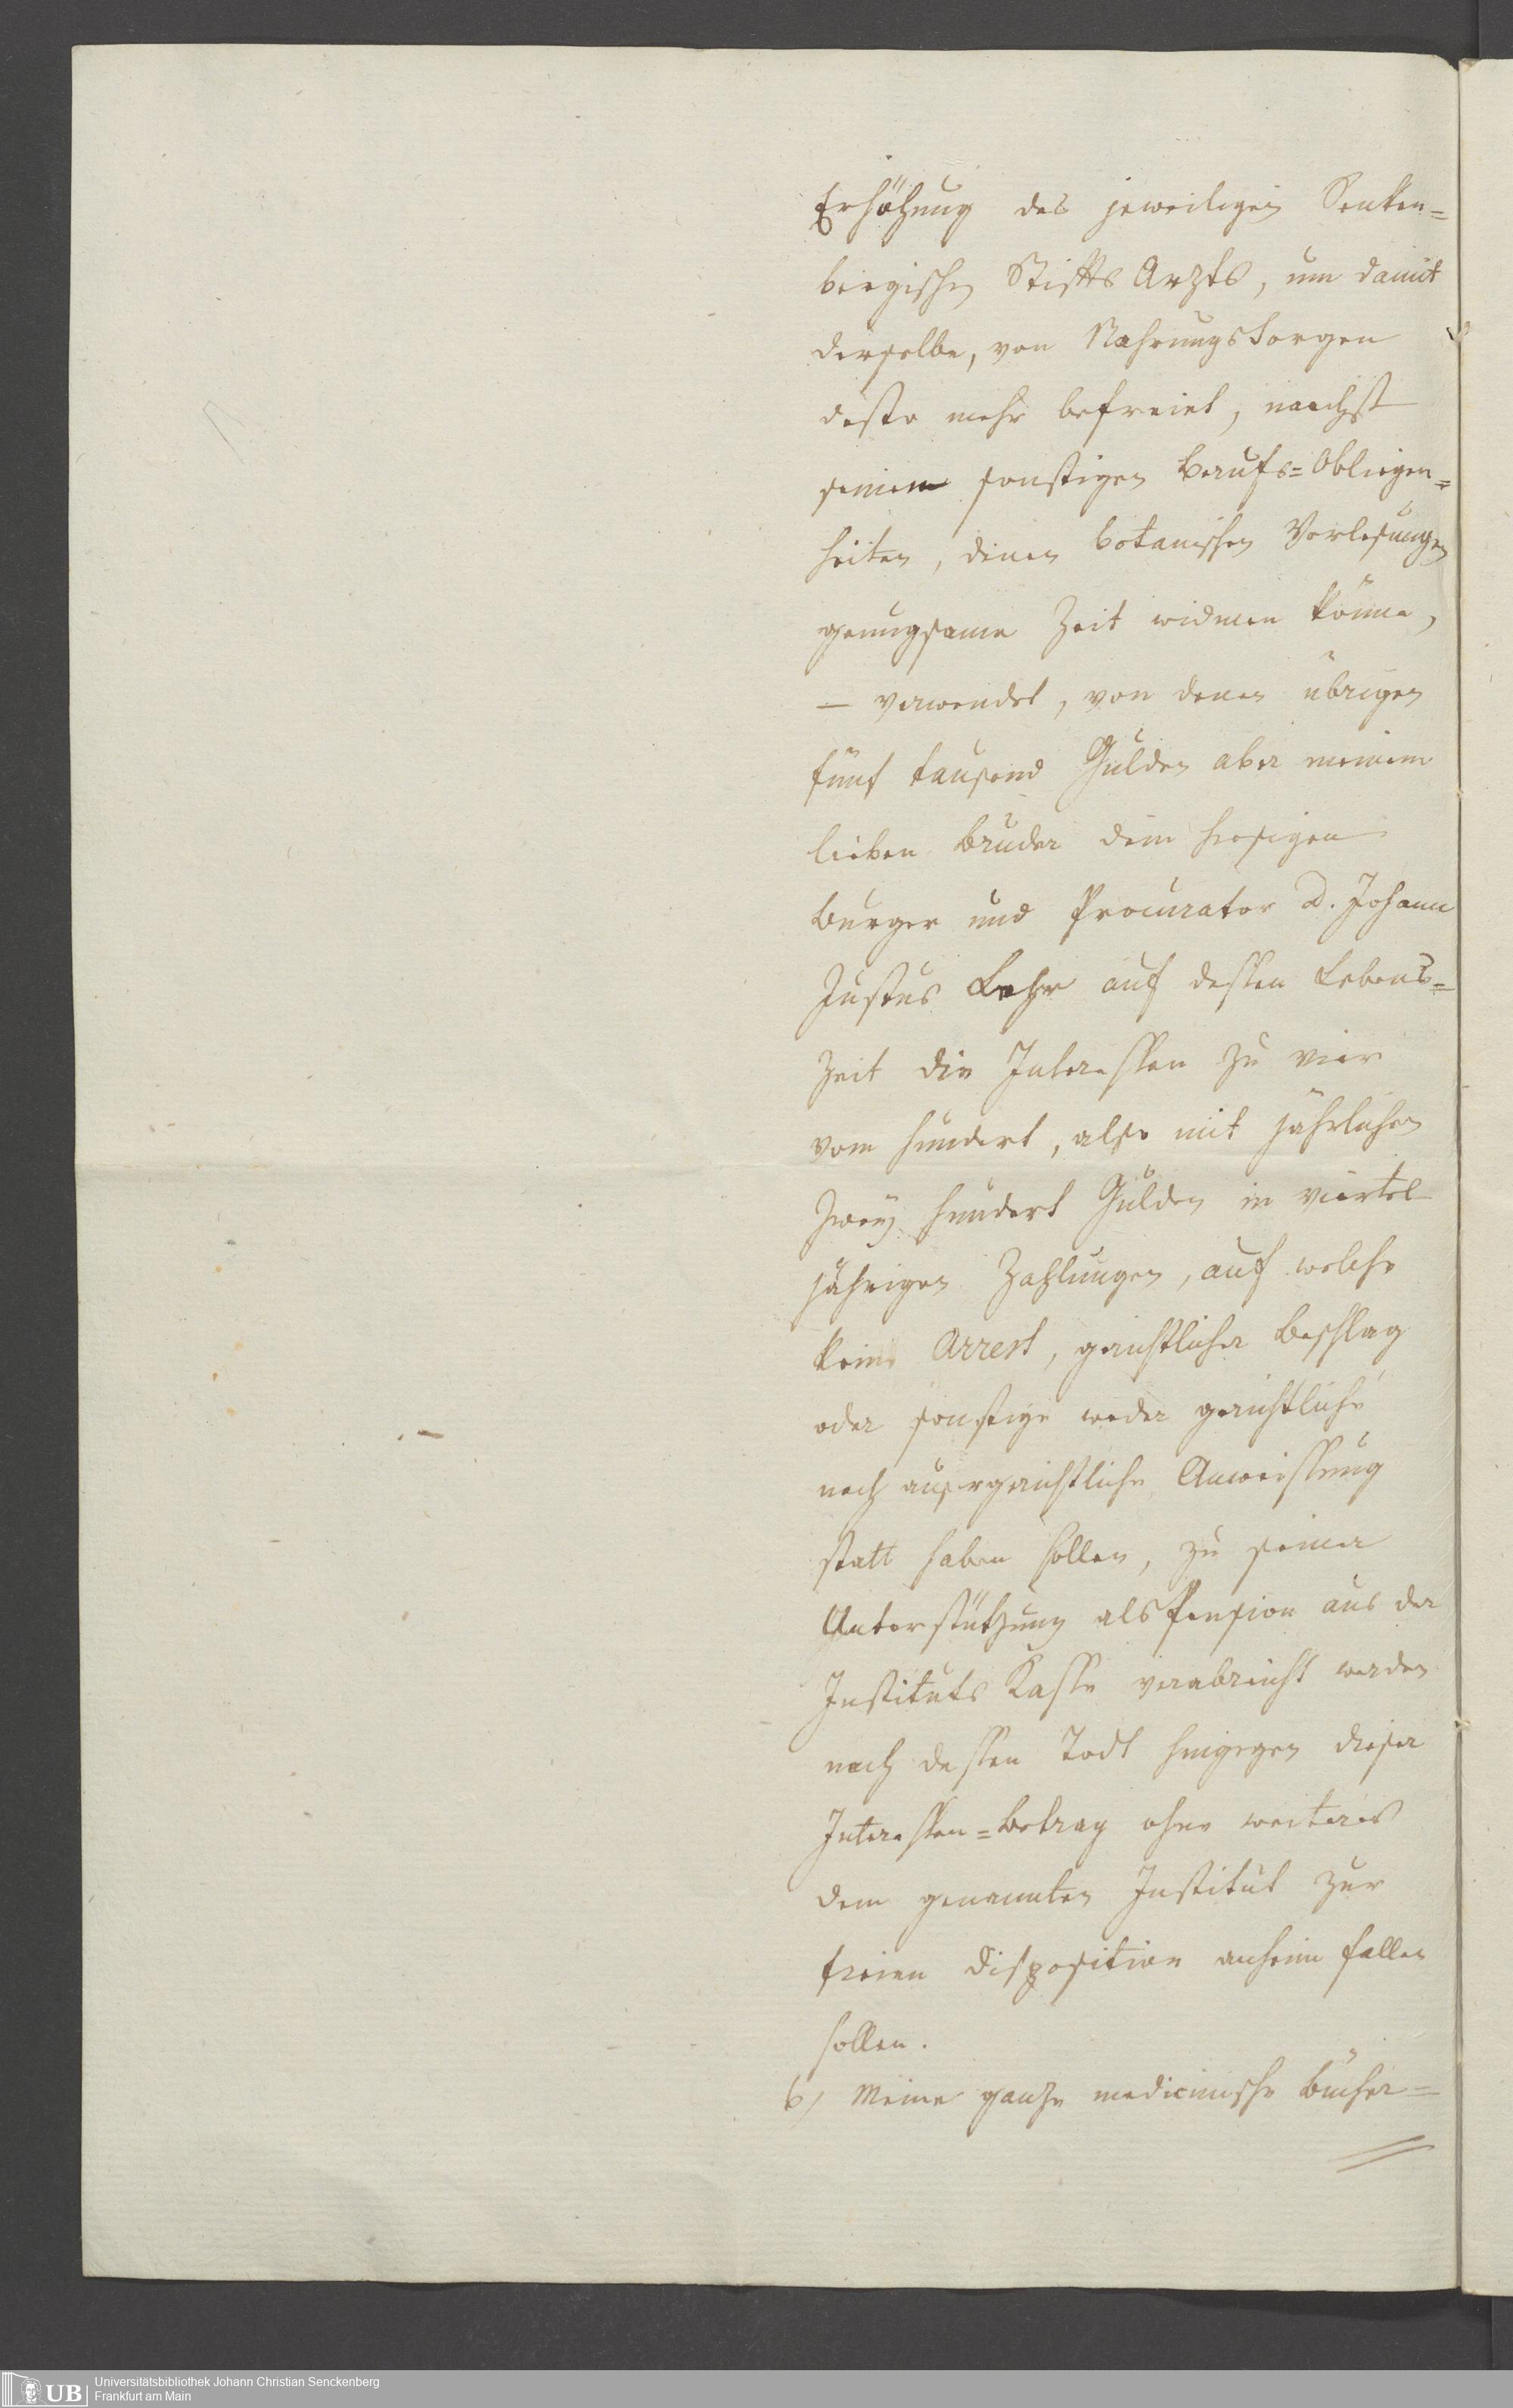 Erhöhung des jeweiligen Senken=
bergischen Stifts Arzts, um damit
derselbe, von Nahrungs Sorgen
desto mehr befreiet, naechst
seinen sonstigen Berufs=Obliegen=
heiten, denen botanischen Vorlesungen
genugsame Zeit widmen könne,
— verwendet, von denen übrigen
fünf tausend Gulden aber meinem
lieben Bruder dem hiesigen
Burger und Procurator D. Johann
Justus Lehr auf dessen Lebens=
Zeit die Interessen zu vier
vom hundert, also mit jährlichen
Zwey hundert Gulden in viertel
jährigen Zahlungen, auf welche
keine Arrest, gerichtlicher Beschlag
oder sonstige weder gerichtliche
noch ausergerichtliche Anweissung
statt haben sollen, zu seiner
Unterstützung als Pension aus der
Instituts Kasse verabreicht werden
nach dessen Todt hingegen dieser
Interessen=Betrag ohne weiteres
dem genannten Institut zur
freien Disposition anheim fallen
sollen.
6) Meine ganze medicinische Bücher=
UB
Universitätsbibliothek Johann Christian Senckenberg
Frankfurt am Main